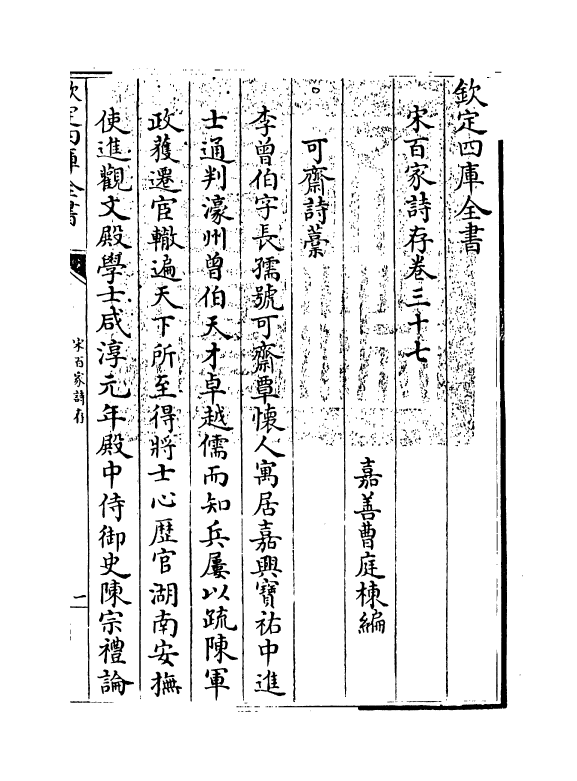 欽定四庫全書
宋百家詩存卷三十七
嘉善曹庭棟編
可齋詩藳
李曾伯字長孺號可齋覃懷人寓居嘉興寶祐中進
士通判濠州曾伯天才卓越儒而知兵屢以疏陳軍
政獲遷官轍遍天下所至得將士心歴官湖南安撫
使進觀文殿學士咸淳元年殿中侍御史陳宗禮論
欽定四庫全書
宋百家詩存